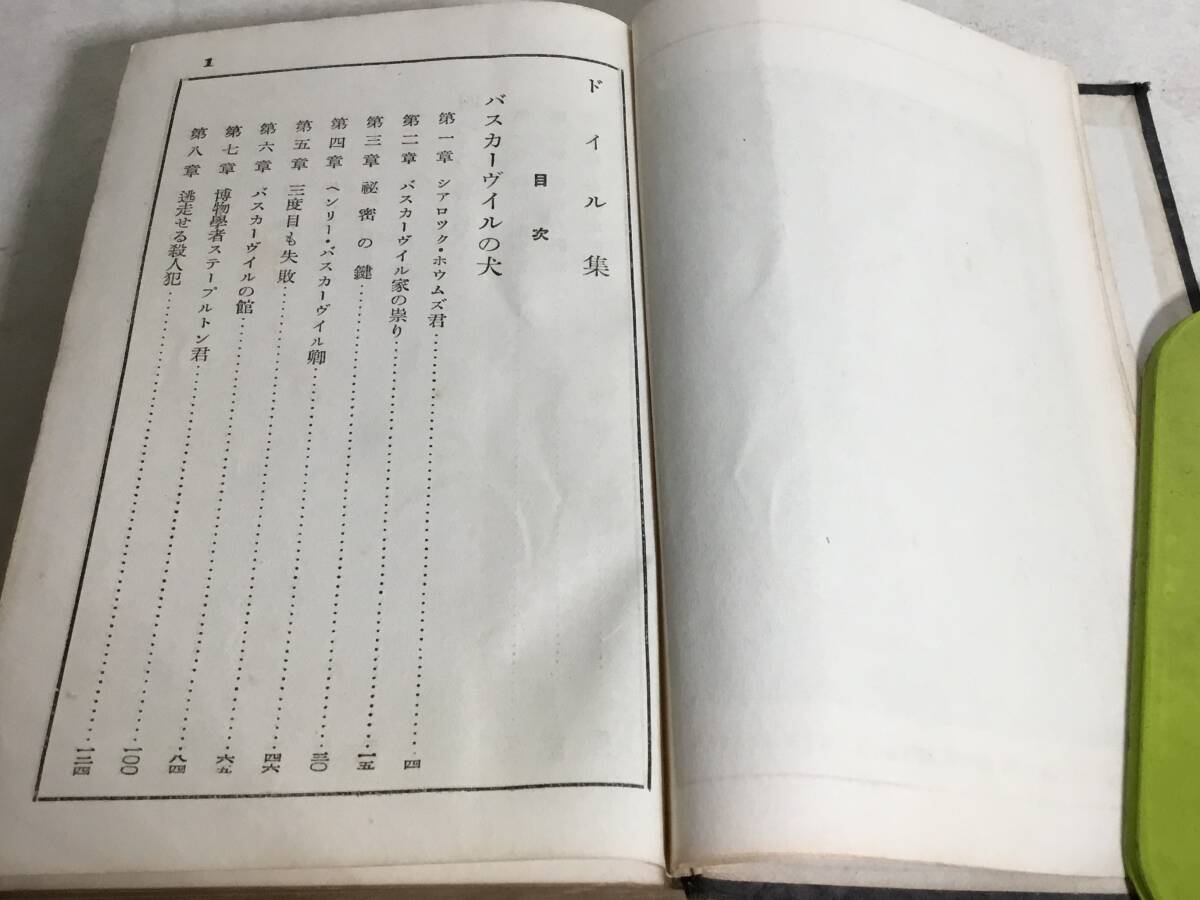 ドイル集
目次
バスカーヴイルの犬
第一章 シアロツク・ホウムズ君……四
第二章 バスカーヴイル家の祟り……一五
第三章 祕密の鍵……三〇
第四章 ヘンリー・バスカーヴイル卿……四六
第五章 三度目も失敗……六五
第六章 バスカーヴイルの館……八四
第七章 博物學者ステープルトン君……一〇〇
第八章 逃走せる殺人犯……一二四
1